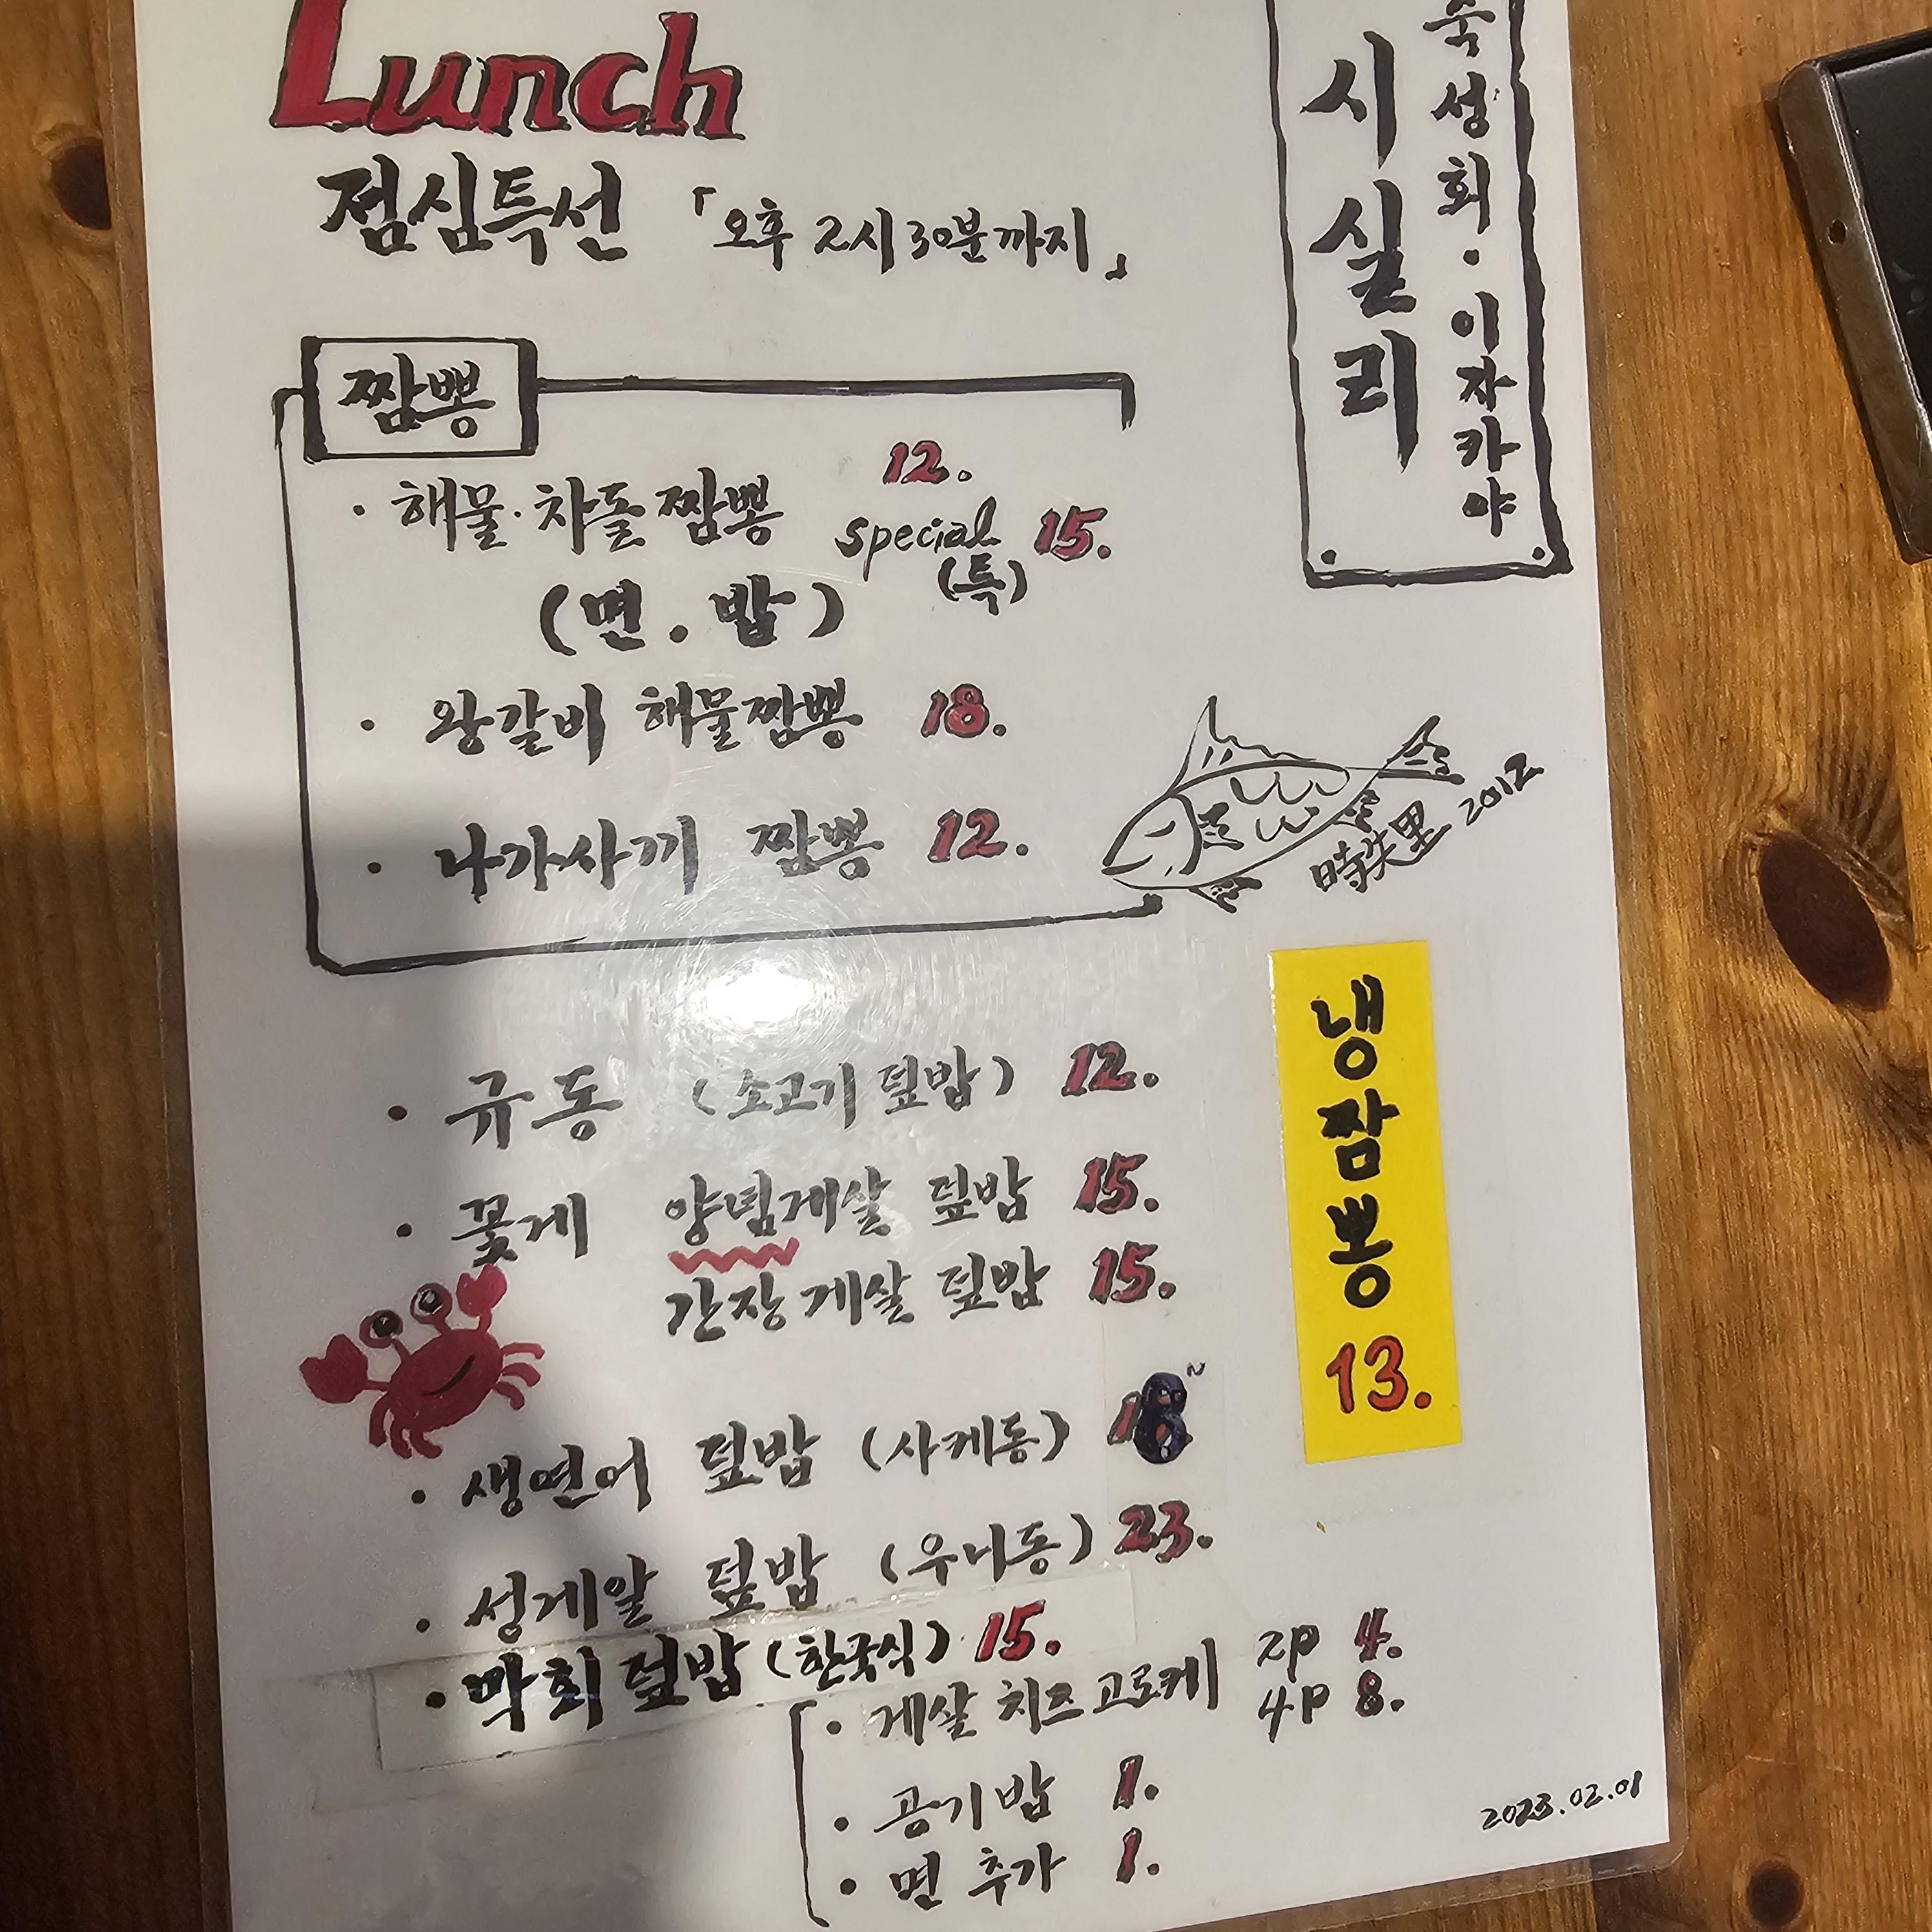 Lunch
점심특선 「오후 2시 30분까지」
숙성회·이자카야
시실리
짬뽕
· 해물·차돌짬뽕 12.
special (특) 15.
(면.밥)
· 왕갈비 해물짬뽕 18.
· 나가사끼 짬뽕 12.
時失里 2012
냉짬뽕 13.
· 규동 (소고기덮밥) 12.
· 꽃게 양념게살 덮밥 15.
간장게살 덮밥 15.
· 생연어 덮밥 (사케동)
· 성게알 덮밥 (우니동) 23.
· 막회덮밥 (한국식) 15.
· 게살 치즈고로케 2P 4.
4P 8.
· 공기밥 1.
· 면 추가 1.
2023.02.01